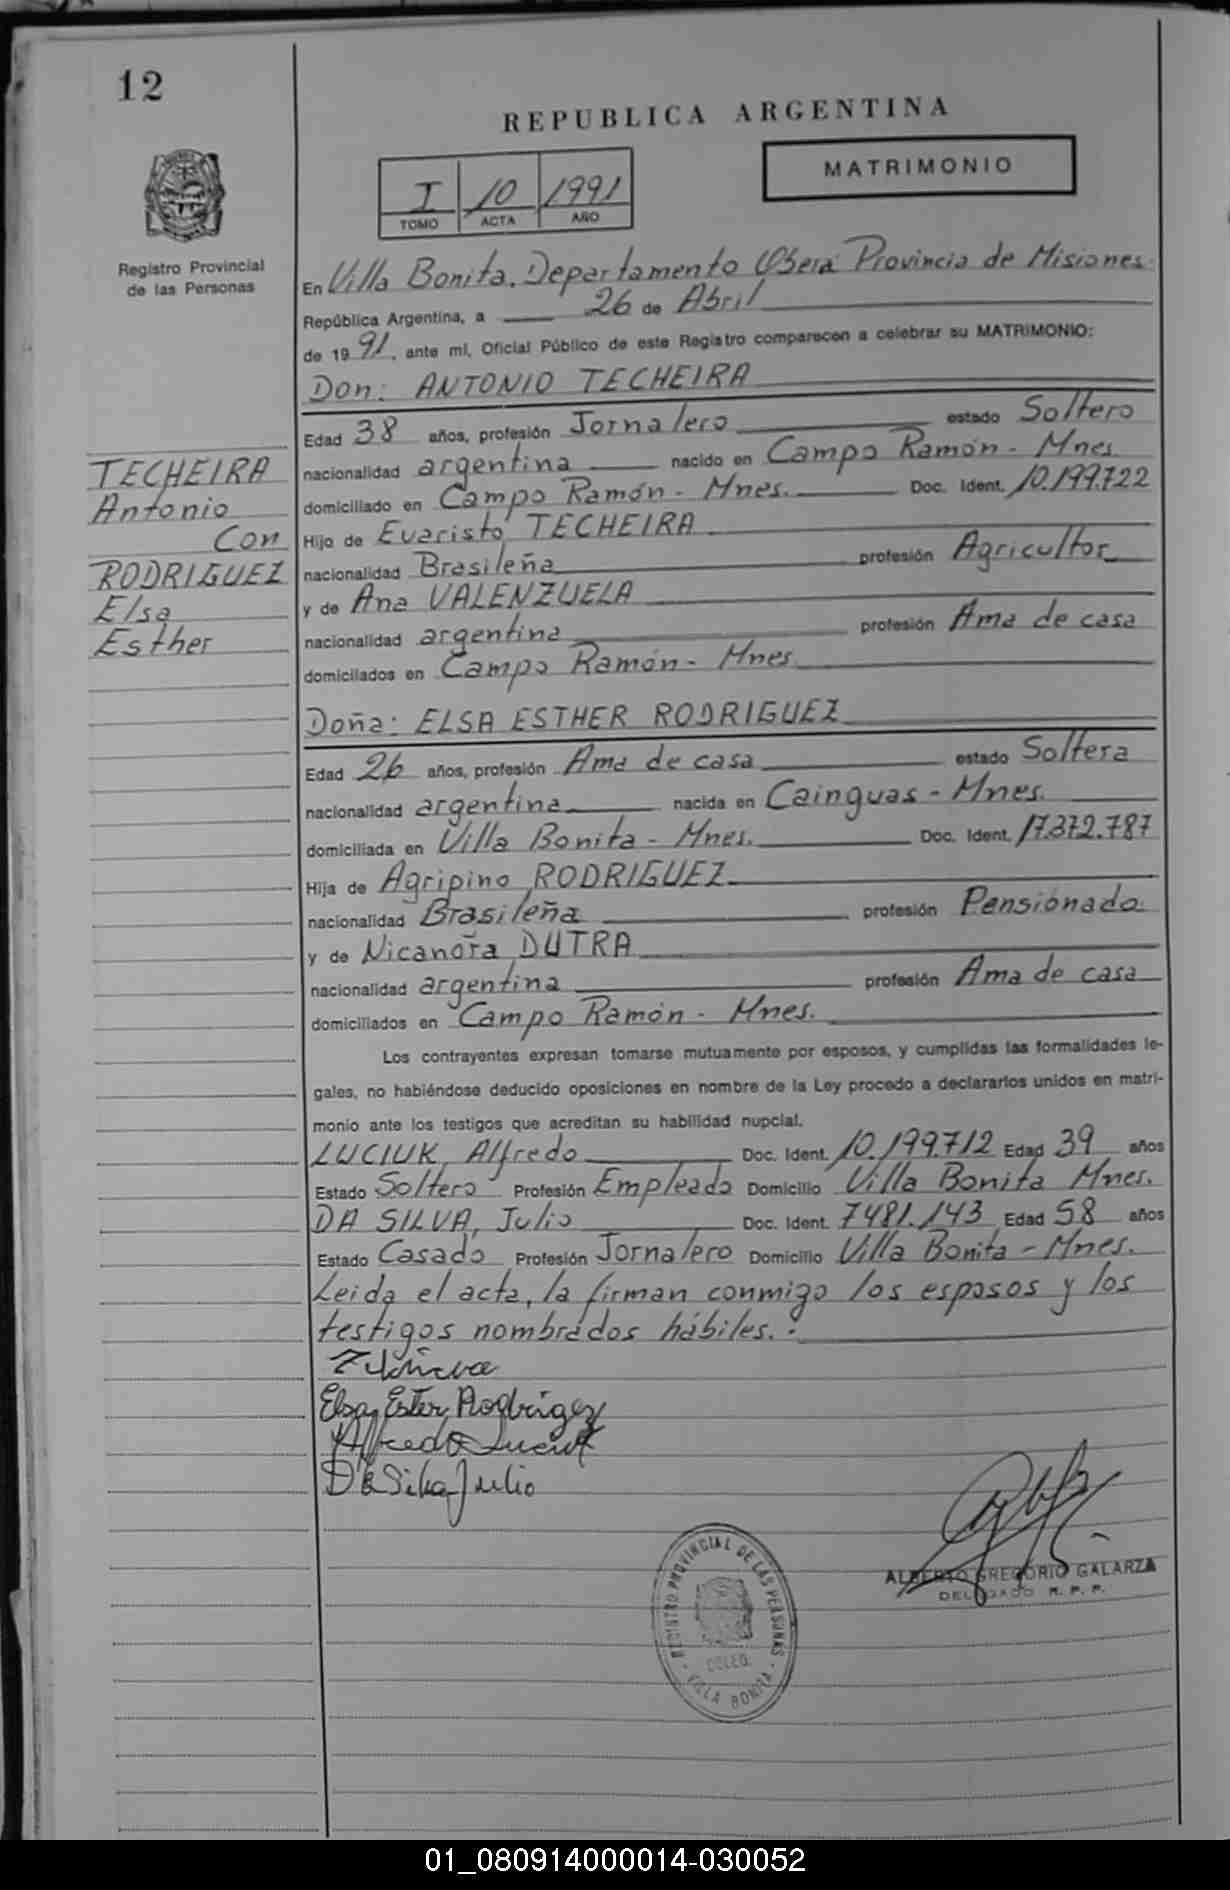 12
REPUBLICA ARGENTINA
MATRIMONIO
I 10 1991
TOMO ACTA AÑO
Registro Provincial
de las Personas
En Villa Bonita. Departamento Oberá Provincia de Misiones
República Argentina, a 26 de Abril
de 1991, ante mí, Oficial Público de este Registro comparecen a celebrar su MATRIMONIO:
Don: ANTONIO TECHEIRA
Edad 38 años, profesión Jornalero estado Soltero
nacionalidad argentina nacido en Campo Ramón - Mnes
domiciliado en Campo Ramón - Mnes. Doc. Ident. 10.199.722
Hijo de Evaristo TECHEIRA
nacionalidad Brasileña profesión Agricultor
y de Ana VALENZUELA
nacionalidad argentina profesión Ama de casa
domiciliados en Campo Ramón - Mnes
TECHEIRA
Antonio
Con
RODRIGUEZ
Elsa
Esther
Doña: ELSA ESTHER RODRIGUEZ
Edad 26 años, profesión Ama de casa estado Soltera
nacionalidad argentina nacida en Cainguas - Mnes.
domiciliada en Villa Bonita - Mnes. Doc. Ident. 17.372.787
Hija de Agripino RODRIGUEZ
nacionalidad Brasileña profesión Pensionado
y de Nicanora DUTRA
nacionalidad argentina profesión Ama de casa
domiciliados en Campo Ramón - Mnes.
Los contrayentes expresan tomarse mutuamente por esposos, y cumplidas las formalidades le-
gales, no habiéndose deducido oposiciones en nombre de la Ley procedo a declararlos unidos en matri-
monio ante los testigos que acreditan su habilidad nupcial.
LUCIUK, Alfredo Doc. Ident. 10.199.712 Edad 39 años
Estado Soltero Profesión Empleado Domicilio Villa Bonita Mnes.
DA SILVA, Julio Doc. Ident. 7481.143 Edad 58 años
Estado Casado Profesión Jornalero Domicilio Villa Bonita - Mnes.
Leida el acta, la firman conmigo los esposos y los
testigos nombrados hábiles. -
Elsa Ester Rodrigez
Alfredo Luciuk
Da Silva Julio
ALBERTO GREGORIO GALARZA
DELEGADO R. P. P.
REGISTRO PROVINCIAL DE LAS PERSONAS
DELEG.
- VILLA BONITA -
01_080914000014-030052